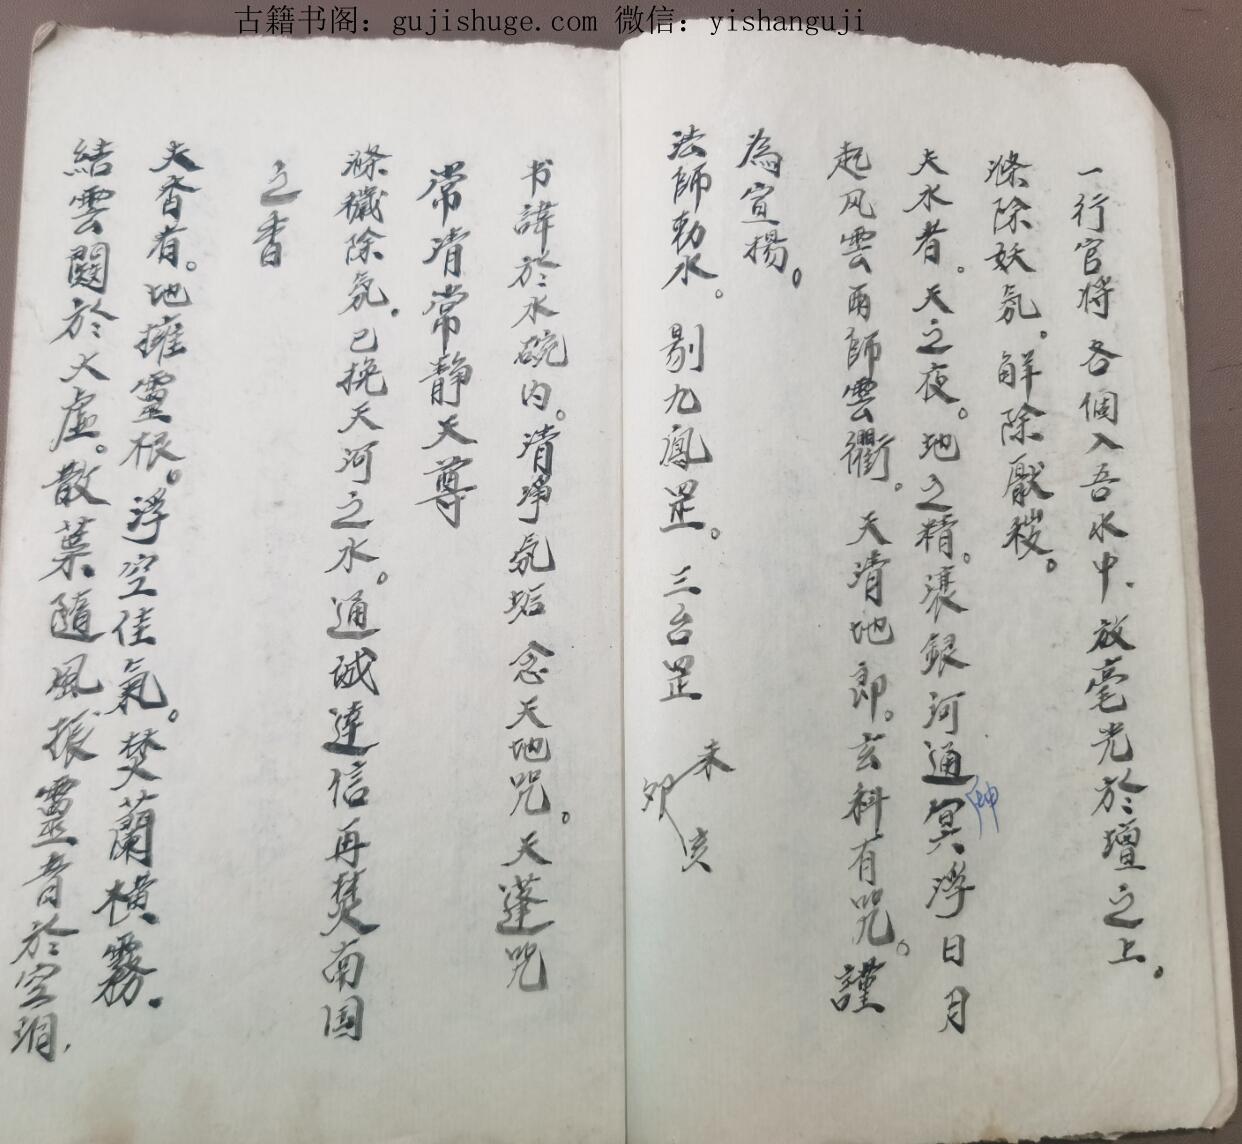 古籍书阁：gujishuge.com 微信：yishanguji
一行官将各個入吾水中、放毫光於壇之上。
滌除妖氛。解除厭穢。
夫水者。天之夜。地之精。瀼銀河通冥浮日月
神
起风雲雨師雲衢。天清地郎。玄科有咒。謹
為宣揚。
法師勅水。剔九鳳罡。三台罡
未
卯
亥
书諱於水碗内。清净氛垢 念天地咒。天蓬咒
常清常静天尊
滌穢除氛。已挽天河之水。通誠達信再焚南国
之香
夫香者。地擁靈根。浮空佳氣。焚蘭横霧.
結雲閣於大虚。散葉隨風振靈音於空洞,